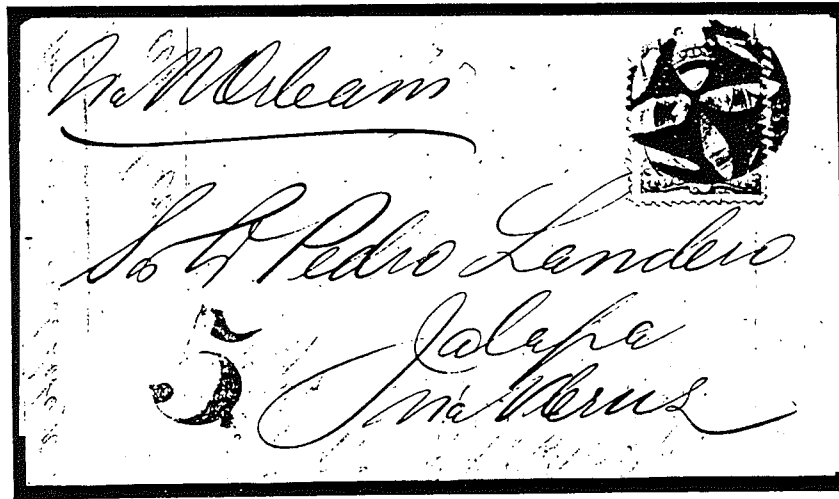 Via N Orleans
Sor Dn Pedro Landero
Jalapa
5
via V Cruz